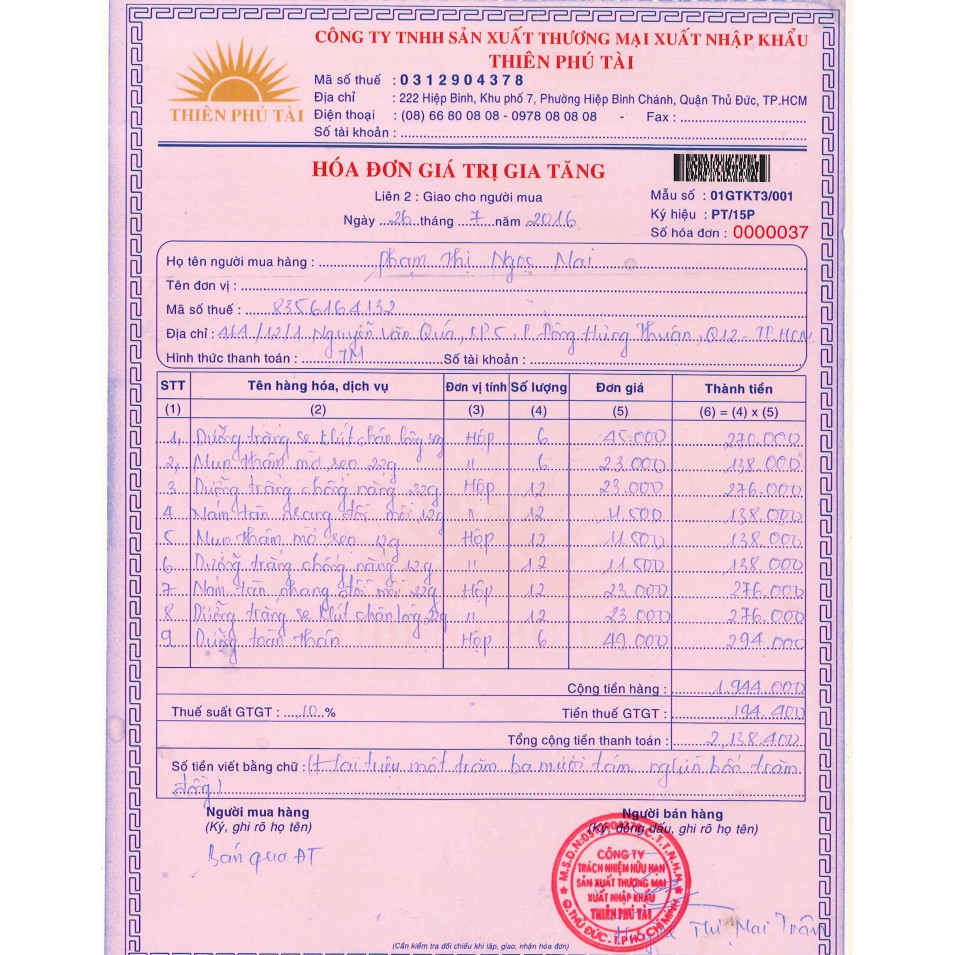 CÔNG TY TNHH SẢN XUẤT THƯƠNG MẠI XUẤT NHẬP KHẨU
THIÊN PHÚ TÀI
THIÊN PHÚ TÀI
Mã số thuế : 0312904378
Địa chỉ : 222 Hiệp Bình, Khu phố 7, Phường Hiệp Bình Chánh, Quận Thủ Đức, TP.HCM
Điện thoại : (08) 66 80 08 08 - 0978 08 08 08 - Fax :
Số tài khoản :
HÓA ĐƠN GIÁ TRỊ GIA TĂNG
Liên 2 : Giao cho người mua
Ngày 26 tháng 7 năm 2016
Mẫu số : 01GTKT3/001
Ký hiệu : PT/15P
Số hóa đơn : 0000037
Họ tên người mua hàng : Phạm Thị Ngọc Mai
Tên đơn vị :
Mã số thuế : 8356164132
Địa chỉ : 464/12/1 Nguyễn Văn Quá, KP5, P. Đông Hưng Thuận, Q12 - TP.HCM
Hình thức thanh toán : TM Số tài khoản :
STT Tên hàng hóa, dịch vụ Đơn vị tính Số lượng Đơn giá Thành tiền
(1) (2) (3) (4) (5) (6) = (4) x (5)
1, Dưỡng trắng se khít chân lông Hộp 6 45.000 270.000
2, Mụn thâm mờ sẹo 22g " 6 23.000 138.000
3 Dưỡng trắng chống nắng 22g Hộp 12 23.000 276.000
4 Nám tàn nhang đồi mồi 12g " 12 11.500 138.000
5 Mụn thâm mờ sẹo 12g Hộp 12 11.500 138.000
6 Dưỡng trắng chống nắng 12g " 12 11.500 138.000
7 Nám tàn nhang đồi mồi 22g Hộp 12 23.000 276.000
8 Dưỡng trắng se khít chân lông 22g " 12 23.000 276.000
9 Dưỡng toàn thân Hộp 6 49.000 294.000
Cộng tiền hàng : 1.944.000
Thuế suất GTGT : 10 % Tiền thuế GTGT : 194.400
Tổng cộng tiền thanh toán : 2.138.400
Số tiền viết bằng chữ : (Hai triệu một trăm ba mười tám nghìn bốn trăm
đồng)
Người mua hàng Người bán hàng
(Ký, ghi rõ họ tên) (Ký, đóng dấu, ghi rõ họ tên)
Bán qua ĐT
CÔNG TY
TRÁCH NHIỆM HỮU HẠN
SẢN XUẤT THƯƠNG MẠI
XUẤT NHẬP KHẨU
THIÊN PHÚ TÀI
Q.THỦ ĐỨC - T.P HỒ CHÍ MINH
Thị Mai Trâm
(Cần kiểm tra đối chiếu khi lập, giao, nhận hóa đơn)